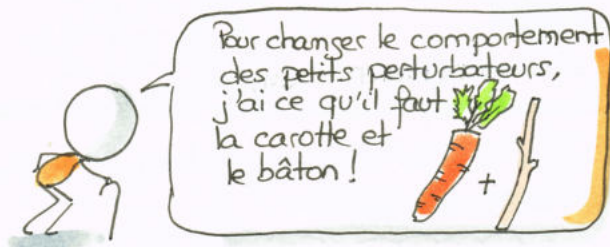 Pour changer le comportement
des petits perturbateurs,
j'ai ce qu'il faut
la carotte et
le bâton !
+